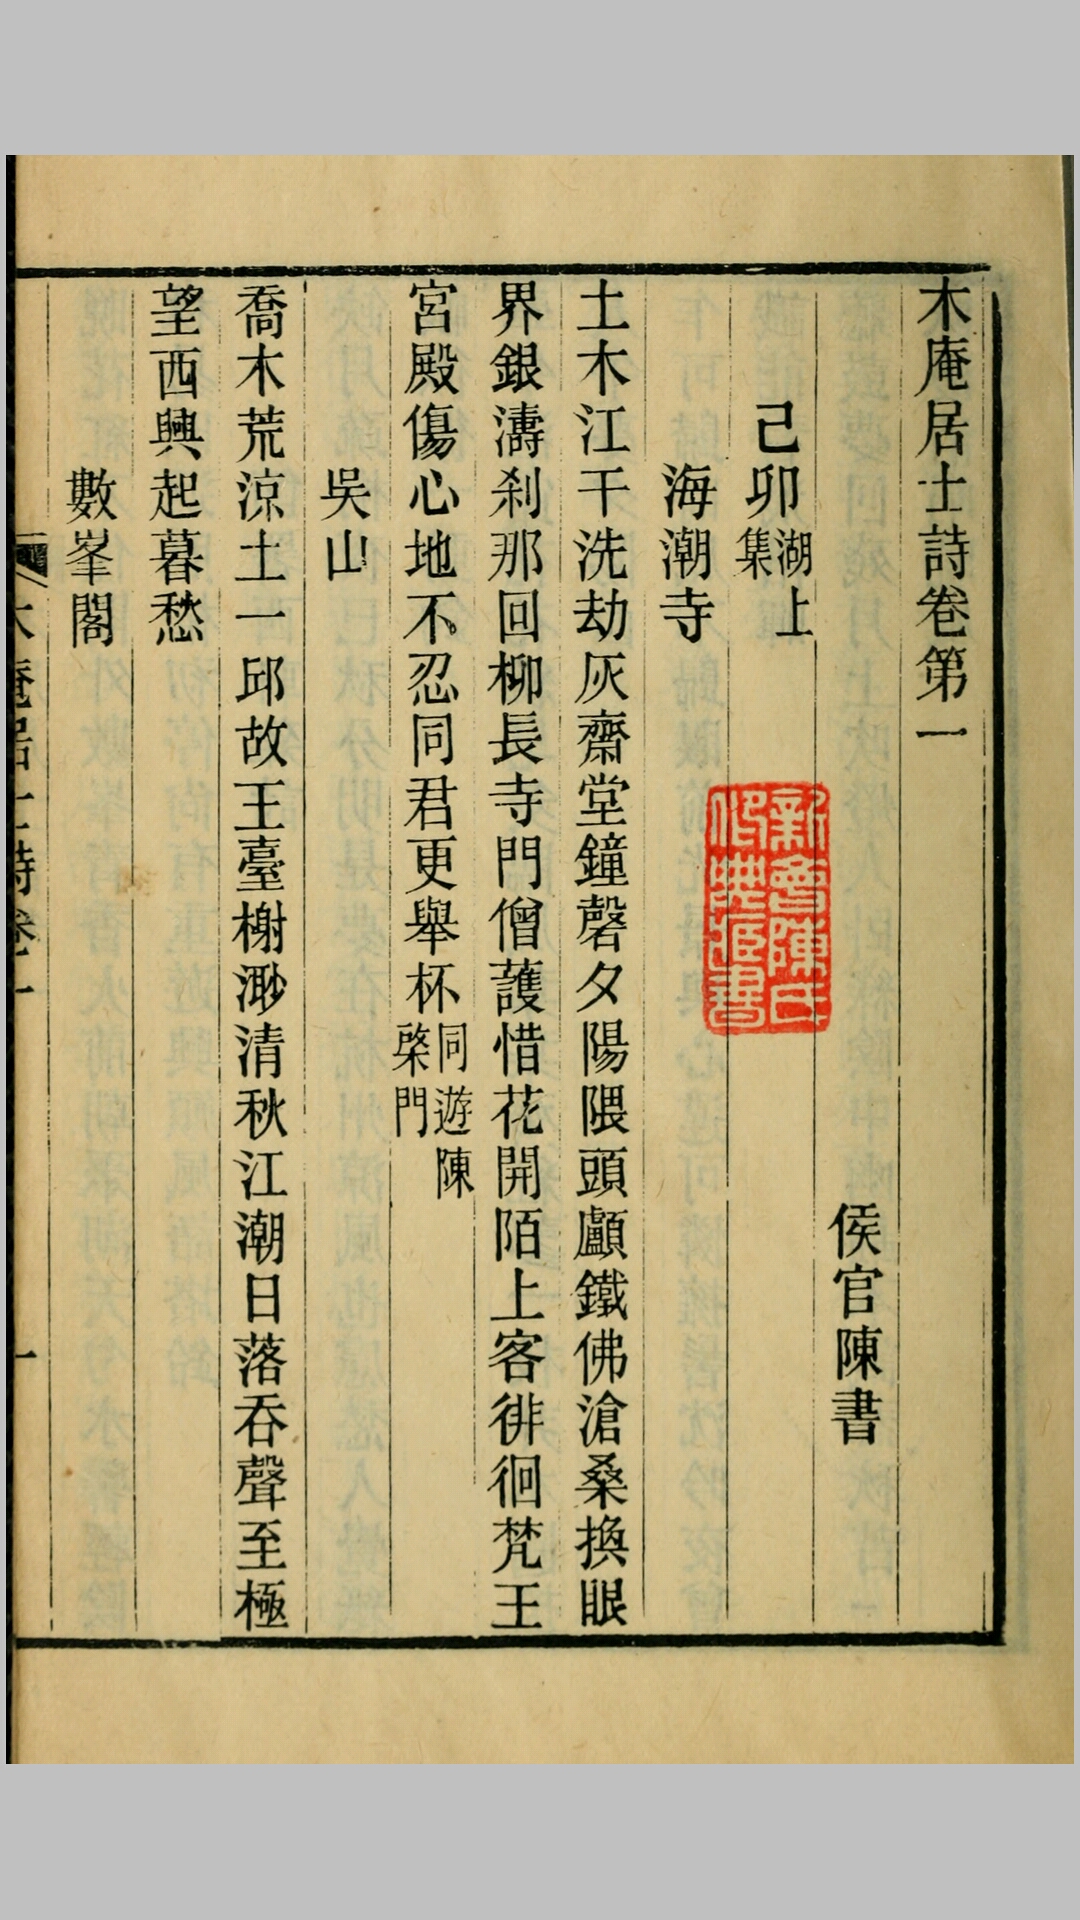 木庵居士詩卷第一
侯官陳書
己卯湖上集
海潮寺
土木江干洗劫灰齋堂鐘磬夕陽隈頭顱鐵佛滄桑換眼
界銀濤刹那回柳長寺門僧護惜花開陌上客徘徊梵王
宮殿傷心地不忍同君更舉杯同遊陳棨門
吳山
喬木荒涼土一邱故王臺榭渺清秋江潮日落吞聲至極
望西興起暮愁
數峯閣
木庵居士詩卷一
一
新會陳氏